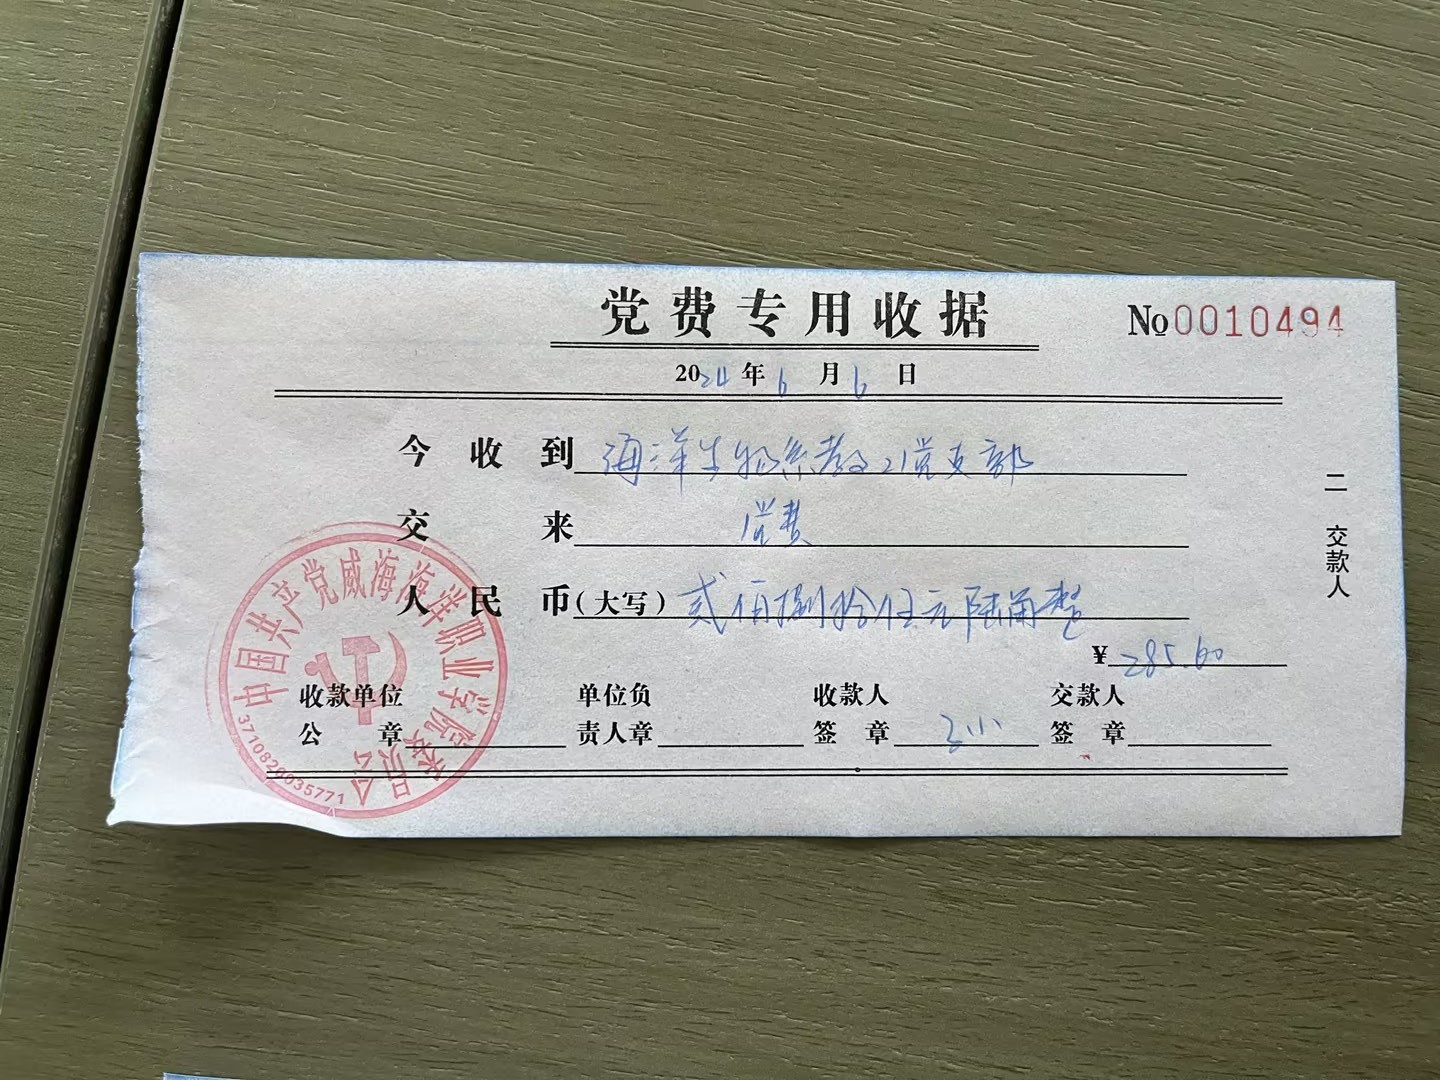 党费专用收据
No 0010494
2024年6月6日
今收到 海洋生物系教工党支部
交来 党费
人民币(大写) 贰佰捌拾伍元陆角整
¥ 285.60
收款单位 单位负 收款人 交款人
公章 责人章 签章 签章
二 交款人
中国共产党威海海洋职业学院委员会
3710820035771